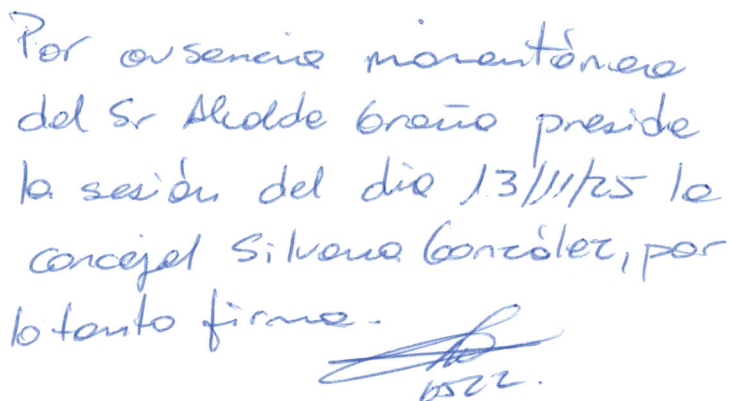 Por ausencia momentánea
del Sr Alcalde Graña preside
la sesión del día 13/11/25 la
concejal Silvana González, por
lo tanto firma.-